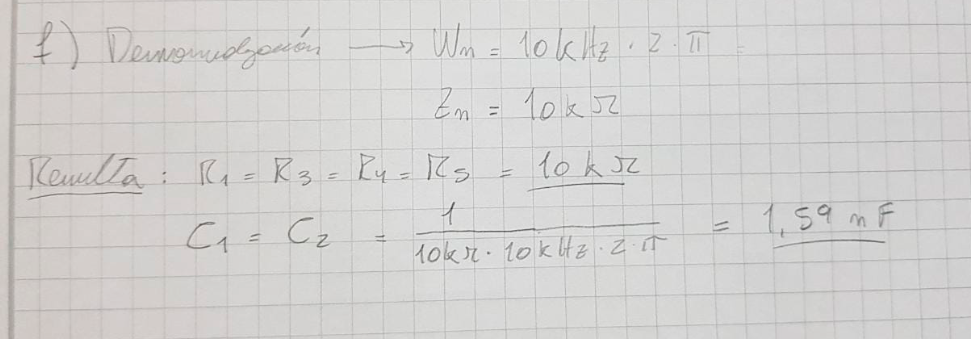 f) Desnormalización → Wn = 10kHz . 2 . π
Zn = 10kΩ
Resulta : R1 = R3 = R4 = R5 = 10 kΩ
C1 = C2 = 1 / 10kΩ . 10kHz . 2 . π = 1,59 nF